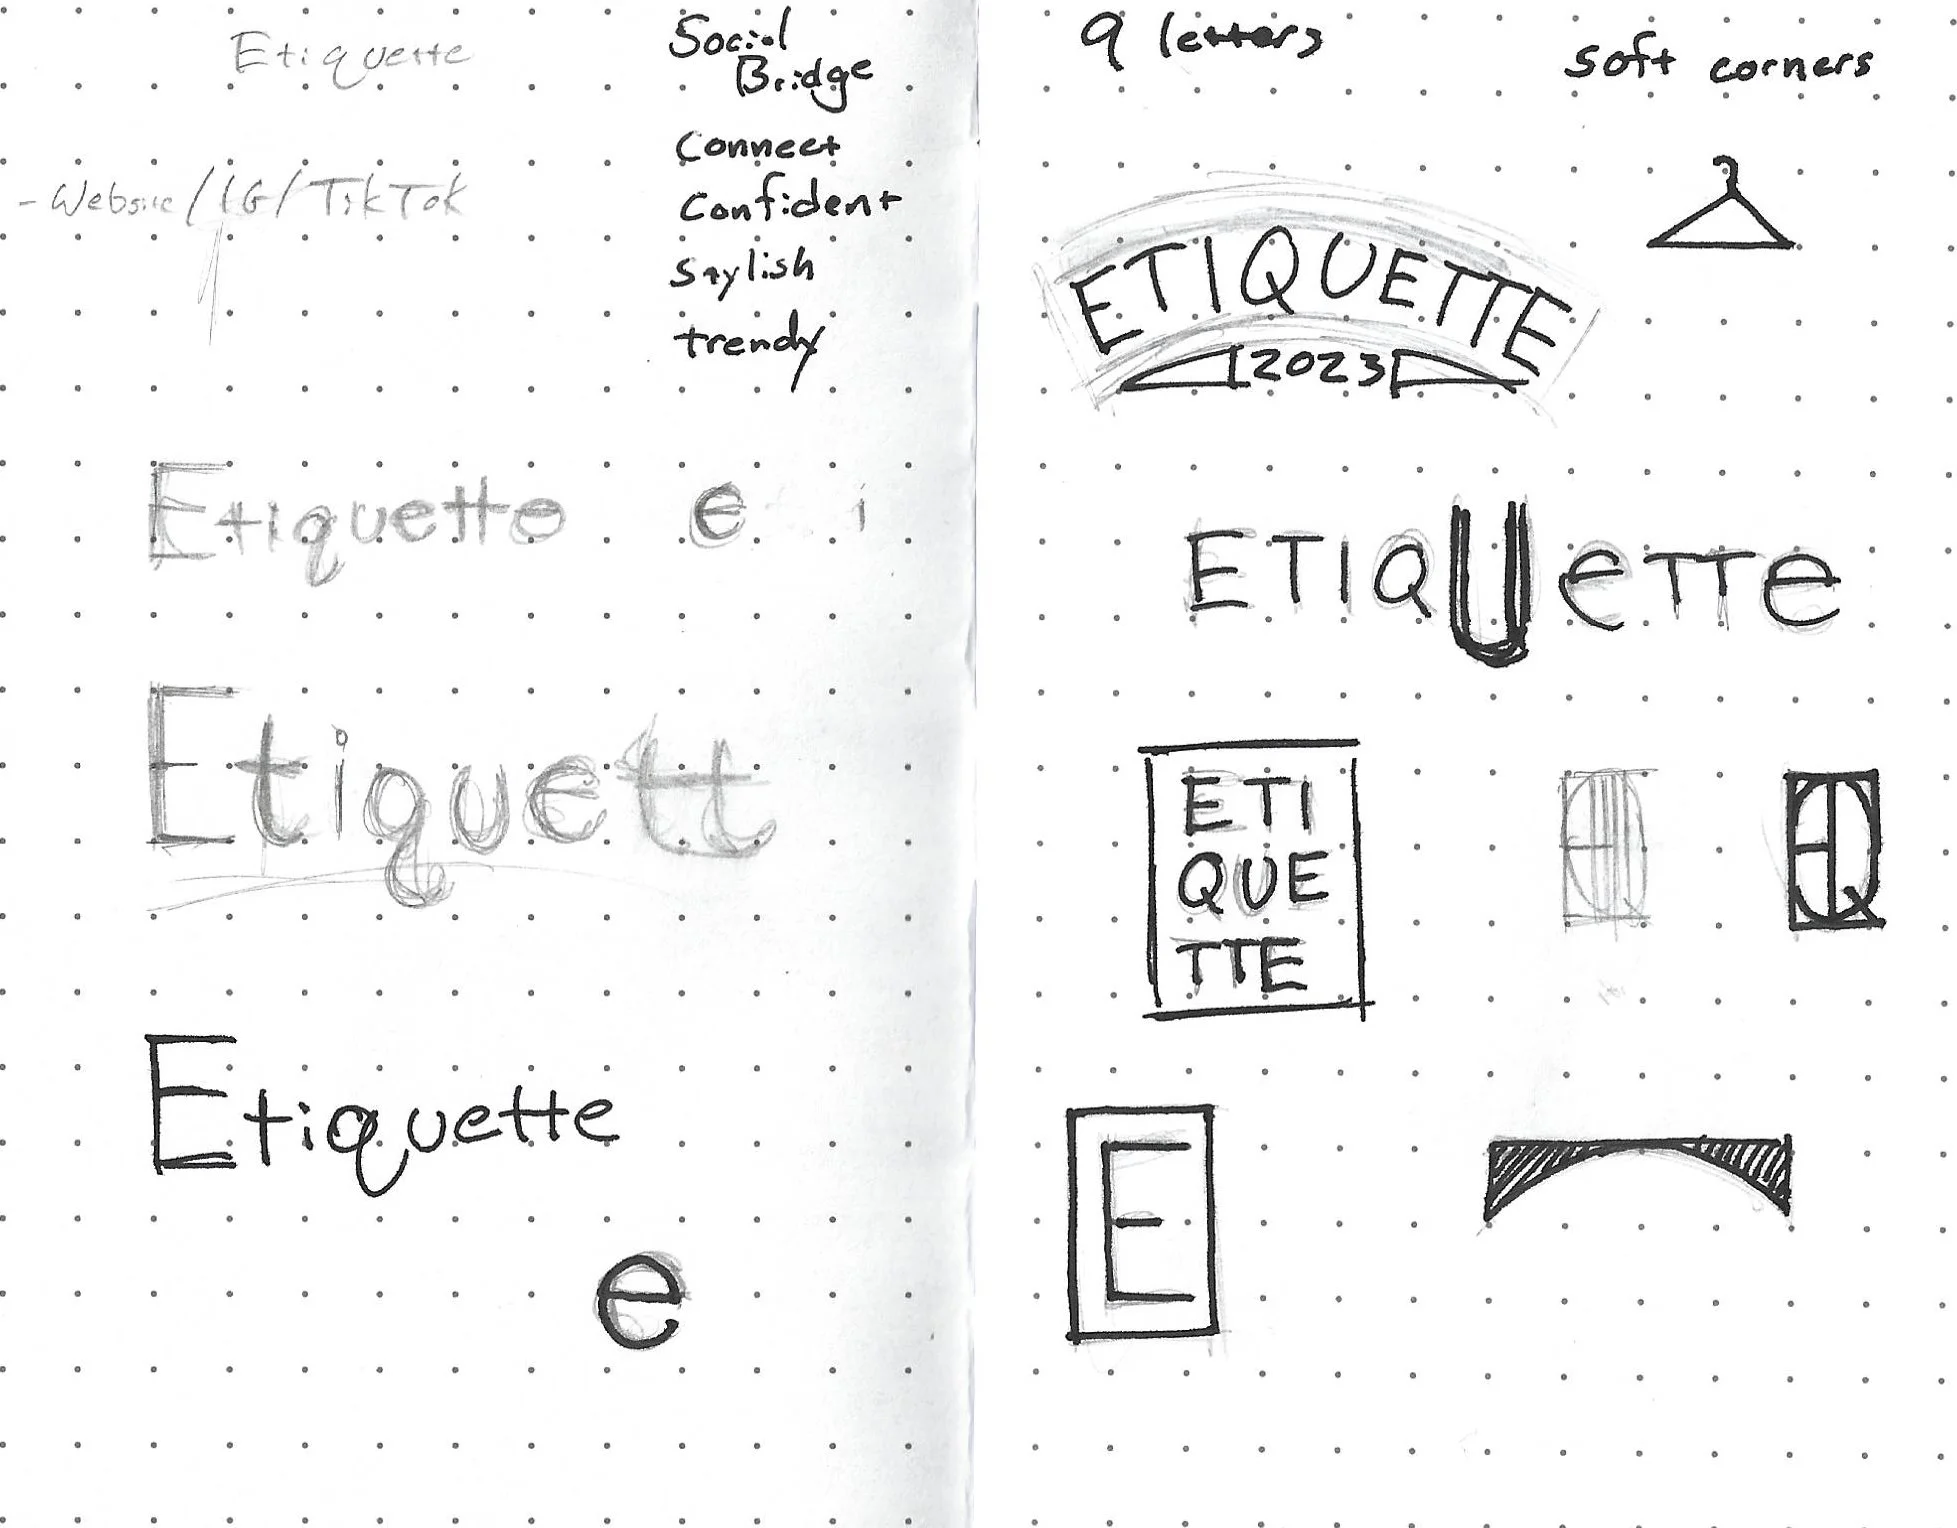 Etiquette
- Website/IG/TikTok
Social
Bridge
Connect
Confident
Stylish
trendy
Etiquette e i
Etiquett
Etiquette
e
9 letters
soft corners
ETIQUETTE
2023
ETIQUeTTe
ETI
QUE
TTE
EQ
E